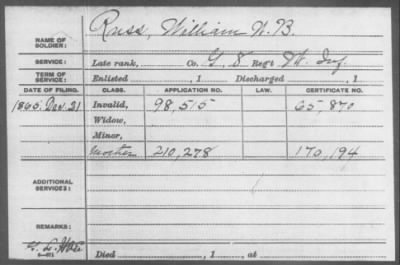 NAME OF SOLDIER: Russ, William W. B.
SERVICE: Late rank, Co. G, 8 Reg't Inf
TERM OF SERVICE: Enlisted , 1 Discharged , 1
DATE OF FILING. CLASS. APPLICATION NO. LAW. CERTIFICATE NO.
1865. Dec. 21 Invalid, 98,515 65,870
Widow,
Minor,
Mother 210,278 170,194
ADDITIONAL SERVICES:
REMARKS:
Died , 1 , at